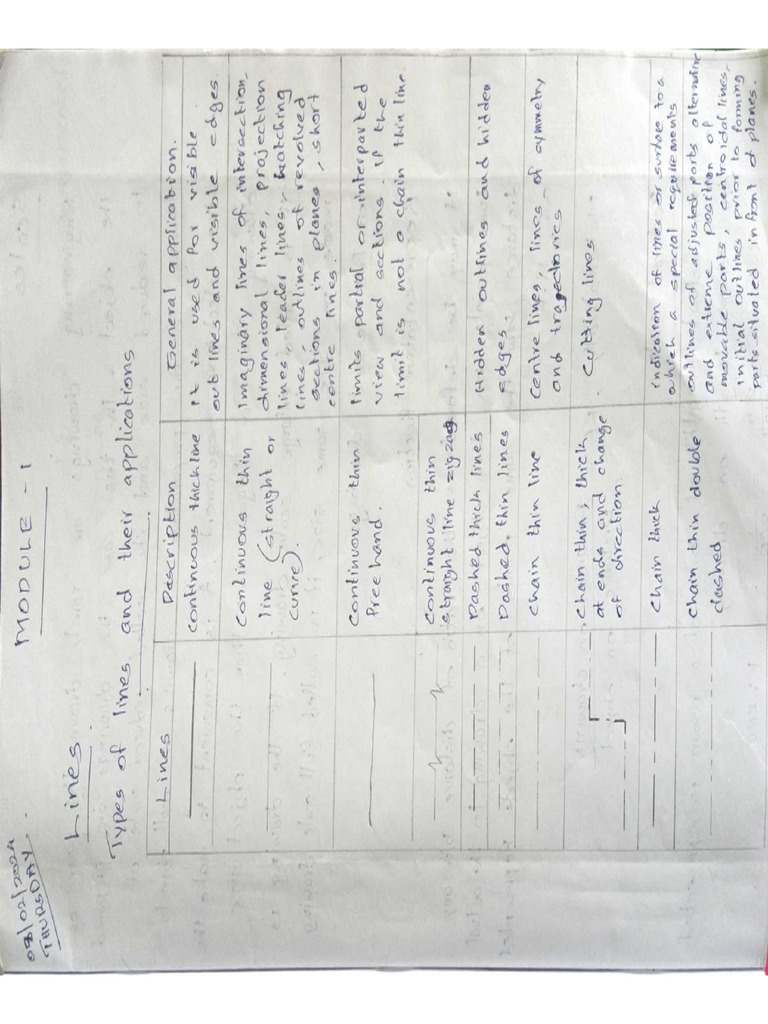 08/02/2024
THURSDAY.
MODULE - 1
Lines
Types of lines and their applications
Lines
Description
General application.
continuous thick line
It is used for visible
out lines and visible edges
continuous thin
line (straight or
curve).
Imaginary lines of intersection,
dimensional lines, projection
lines, leader lines, hatching
lines, outlines of revolved
sections in planes, short
centre lines.
continuous thin
free hand.
limits partial or interparted
view and sections. if the
limit is not a chain thin line.
continuous thin
straight line zig zag
Dashed thick lines
Dashed thin lines
Hidden outlines and hidden
edges.
chain thin line
centre lines, lines of symmetry
and tragectories
chain thin, thick
at ends and change
of direction
Cutting lines
chain thick
indication of lines or surface to a
which a special requirements
chain thin double
dashed
outlines of adjusted parts alternative
and extreme position of
movable parts, centroidal lines,
initial outlines prior to forming
parts situated in front of planes.